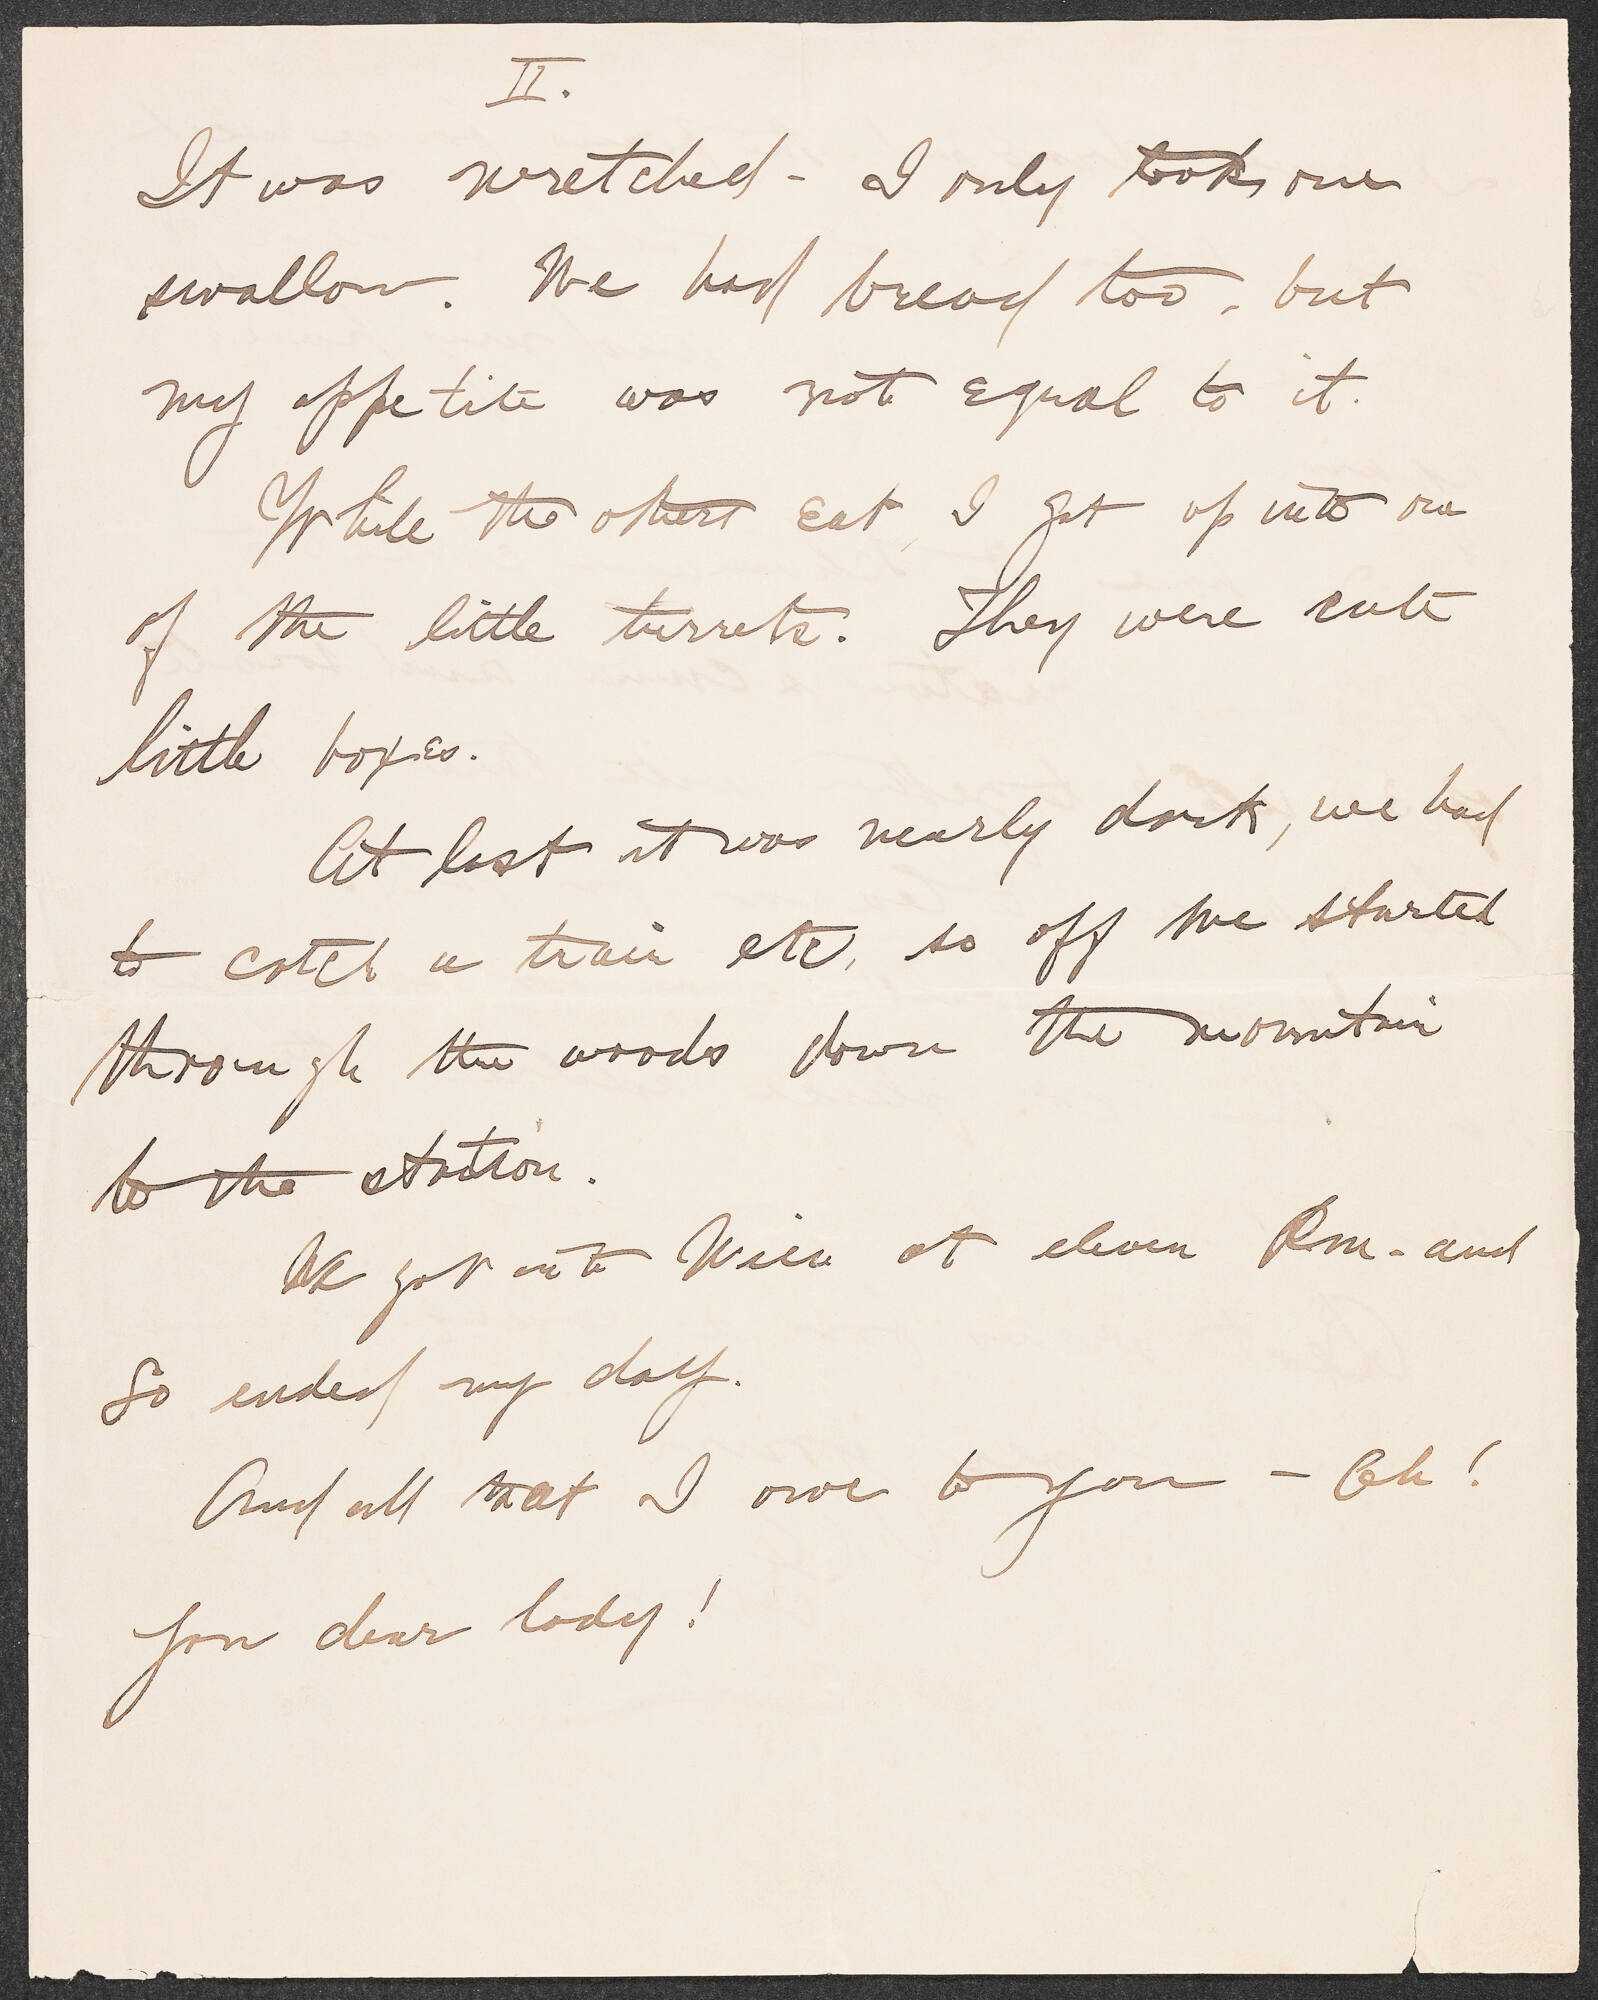 II.
It was wretched - I only took one
swallow. We had bread too, but
my appetite was not equal to it.
While the others eat, I got up into one
of the little turrets. They were cute
little boxes.
At last it was nearly dark, we had
to catch a train etc, so off we started
through the woods down the mountain
to the station.
We got into Wien at eleven P.m. - and
So ended my day.
And all that I owe to you - Ah!
you dear lady!